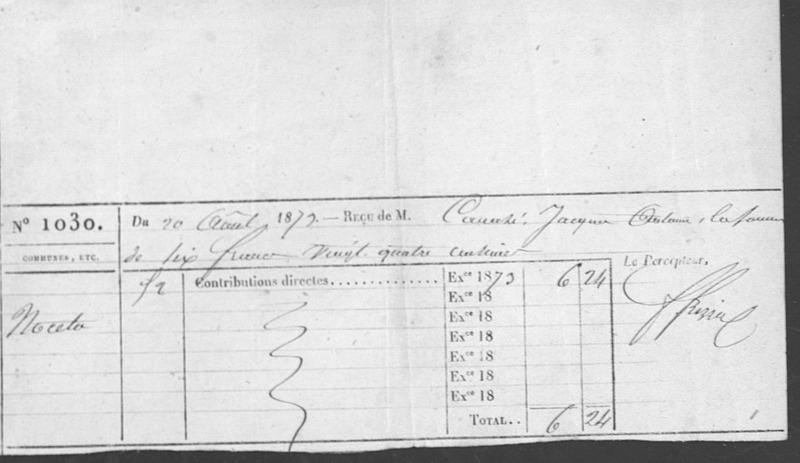 N° 1030. Du 20 Août 1873. — Reçu de M. Jacques Antoine, la somme
COMMUNES, ETC. de six francs vingt quatre centimes
Le Percepteur,
72 Contributions directes............... Exce 1873 6 24
Exce 18
Noceta Exce 18
Exce 18
Exce 18
Exce 18
Exce 18
TOTAL.. 6 24